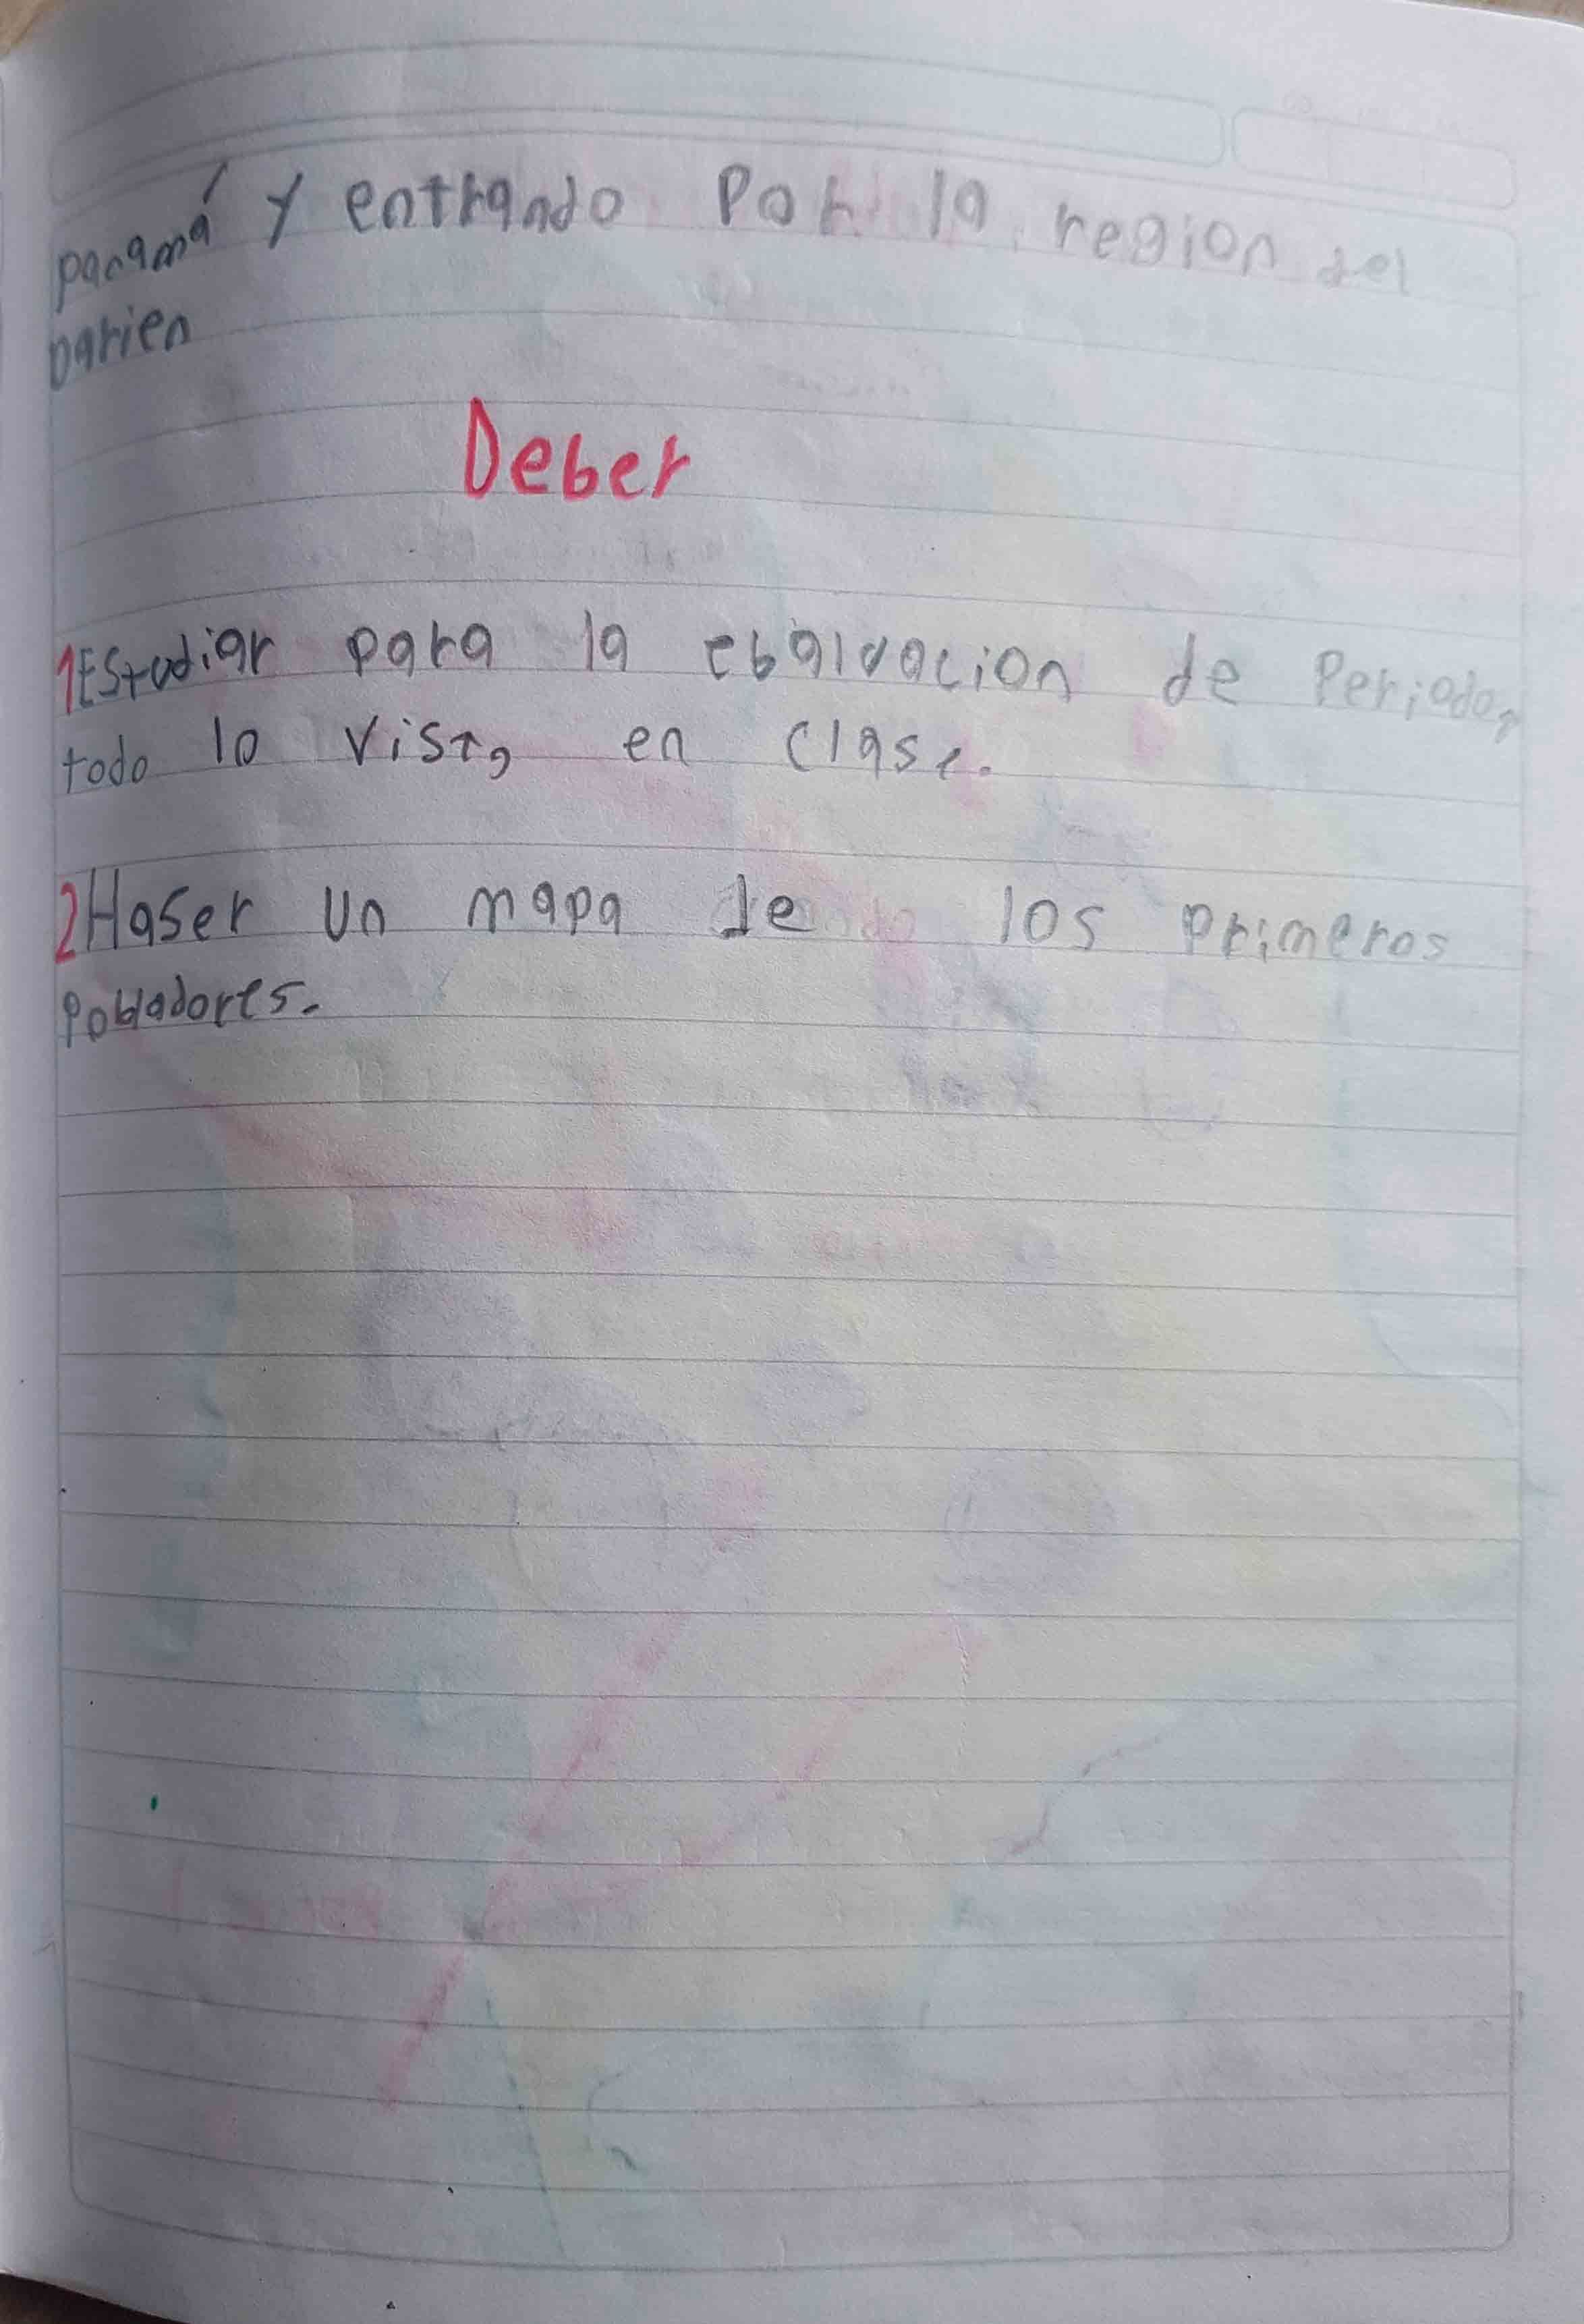 panamá y entrando Por la region del
Darien
Deber
1Estudiar para la ebaluacion de Periodo,
todo lo visto en clase.
2Haser un mapa de los primeros
Pobladores.